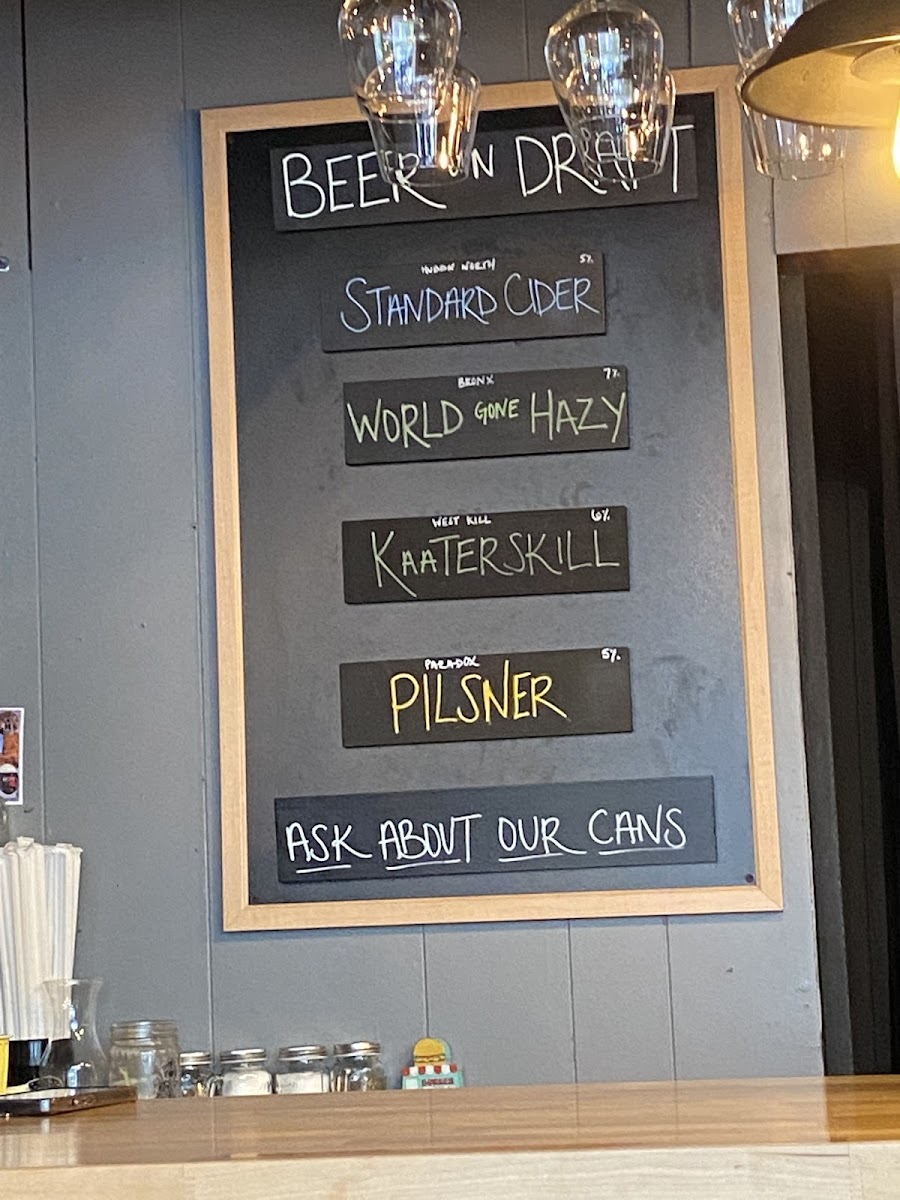 BEER ON DRAFT
HUDSON NORTH 5%
STANDARD CIDER
BRONX 7%
WORLD GONE HAZY
WEST KILL 6%
KAATERSKILL
PARADOX 5%
PILSNER
ASK ABOUT OUR CANS
BURGER